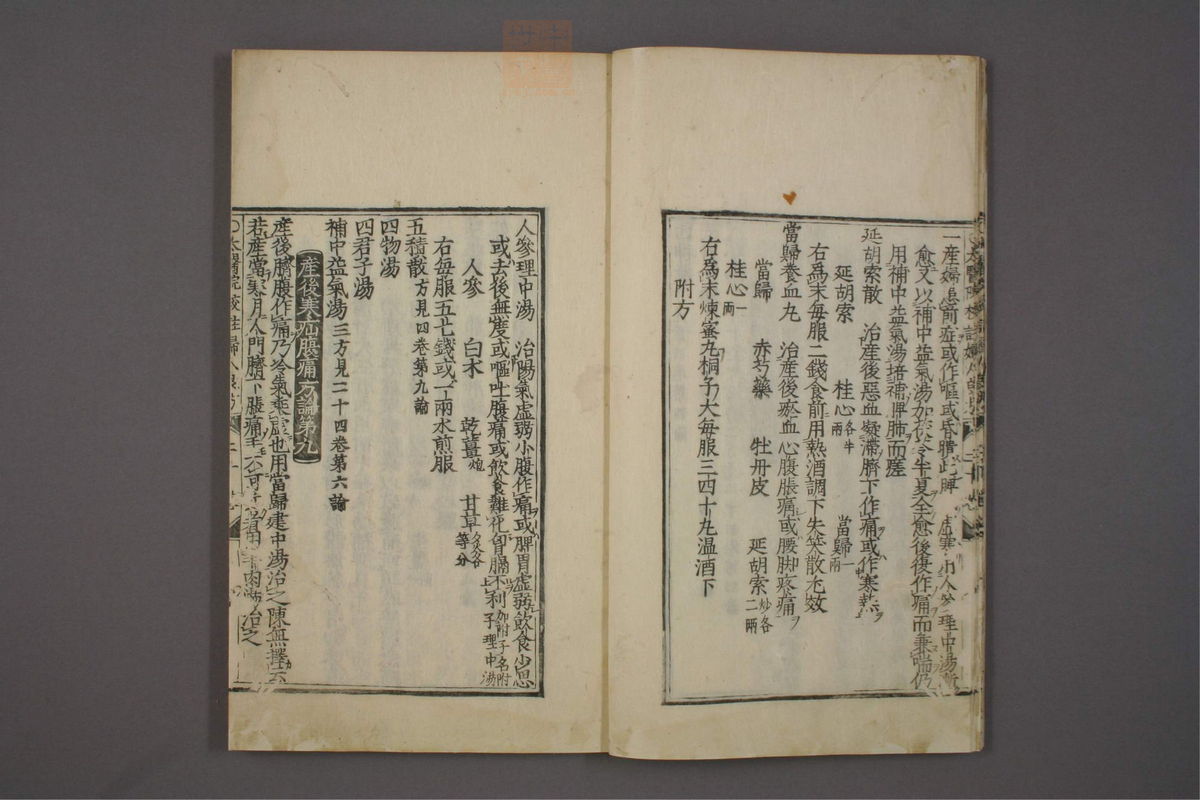 一產婦患前症或作嘔或昏憒此脾虛寒用人參理中湯漸
愈又以補中益氣湯加茯苓半夏全愈後復作痛而兼喘仍
用補中益氣湯培補脾肺而瘥
延胡索散 治產後惡血凝滯臍下作痛或作寒熱
延胡索 桂心各半兩 當歸一兩
右爲末每服二錢食前用熱酒調下失笑散尤效
當歸養血丸 治產後瘀血心腹脹痛或腰脚疼痛
當歸 赤芍藥 牡丹皮 延胡索炒各二兩
桂心一兩
右爲末煉蜜丸桐子大每服三四十丸温酒下
附方
人參理中湯 治陽氣虛弱小腹作痛或脾胃虛弱飲食少思
或去後無度或嘔吐腹痛或飲食難化胸膈不利加附子名附子理中湯
人參 白术 乾薑炮 甘草炙各等分
右每服五七錢或一兩水煎服
五積散方見四卷第九論
四物湯
四君子湯
補中益氣湯三方見二十四卷第六論
產後寒疝腹痛方論第九
產後臍腹作痛乃冷氣乘虛也用當歸建中湯治之陳無擇云
若產當寒月入門臍下脹痛手不可羊肉湯治之